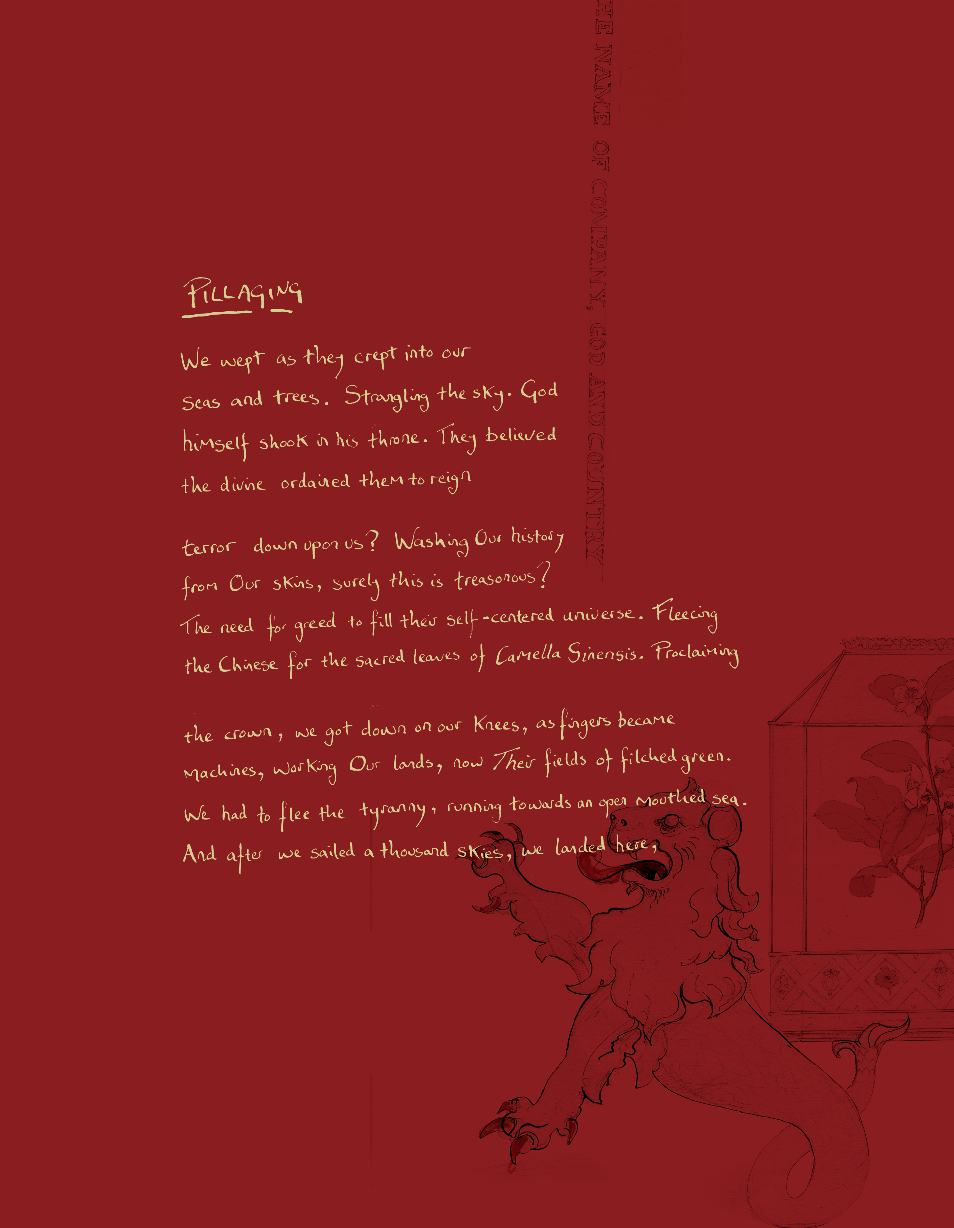 HE NAME OF COMPANY, GOD AND COUNTRY
PILLAGING
We wept as they crept into our
seas and trees. Strangling the sky. God
himself shook in his throne. They believed
the divine ordained them to reign
terror down upon us? Washing Our history
from Our skins, surely this is treasonous?
The need for greed to fill their self-centered universe. Fleecing
the Chinese for the sacred leaves of Camella Sinensis. Proclaiming
the crown, we got down on our knees, as fingers became
machines, working Our lands, now Their fields of filched green.
We had to flee the tyranny, running towards an open mouthed sea.
And after we sailed a thousand skies, we landed here,